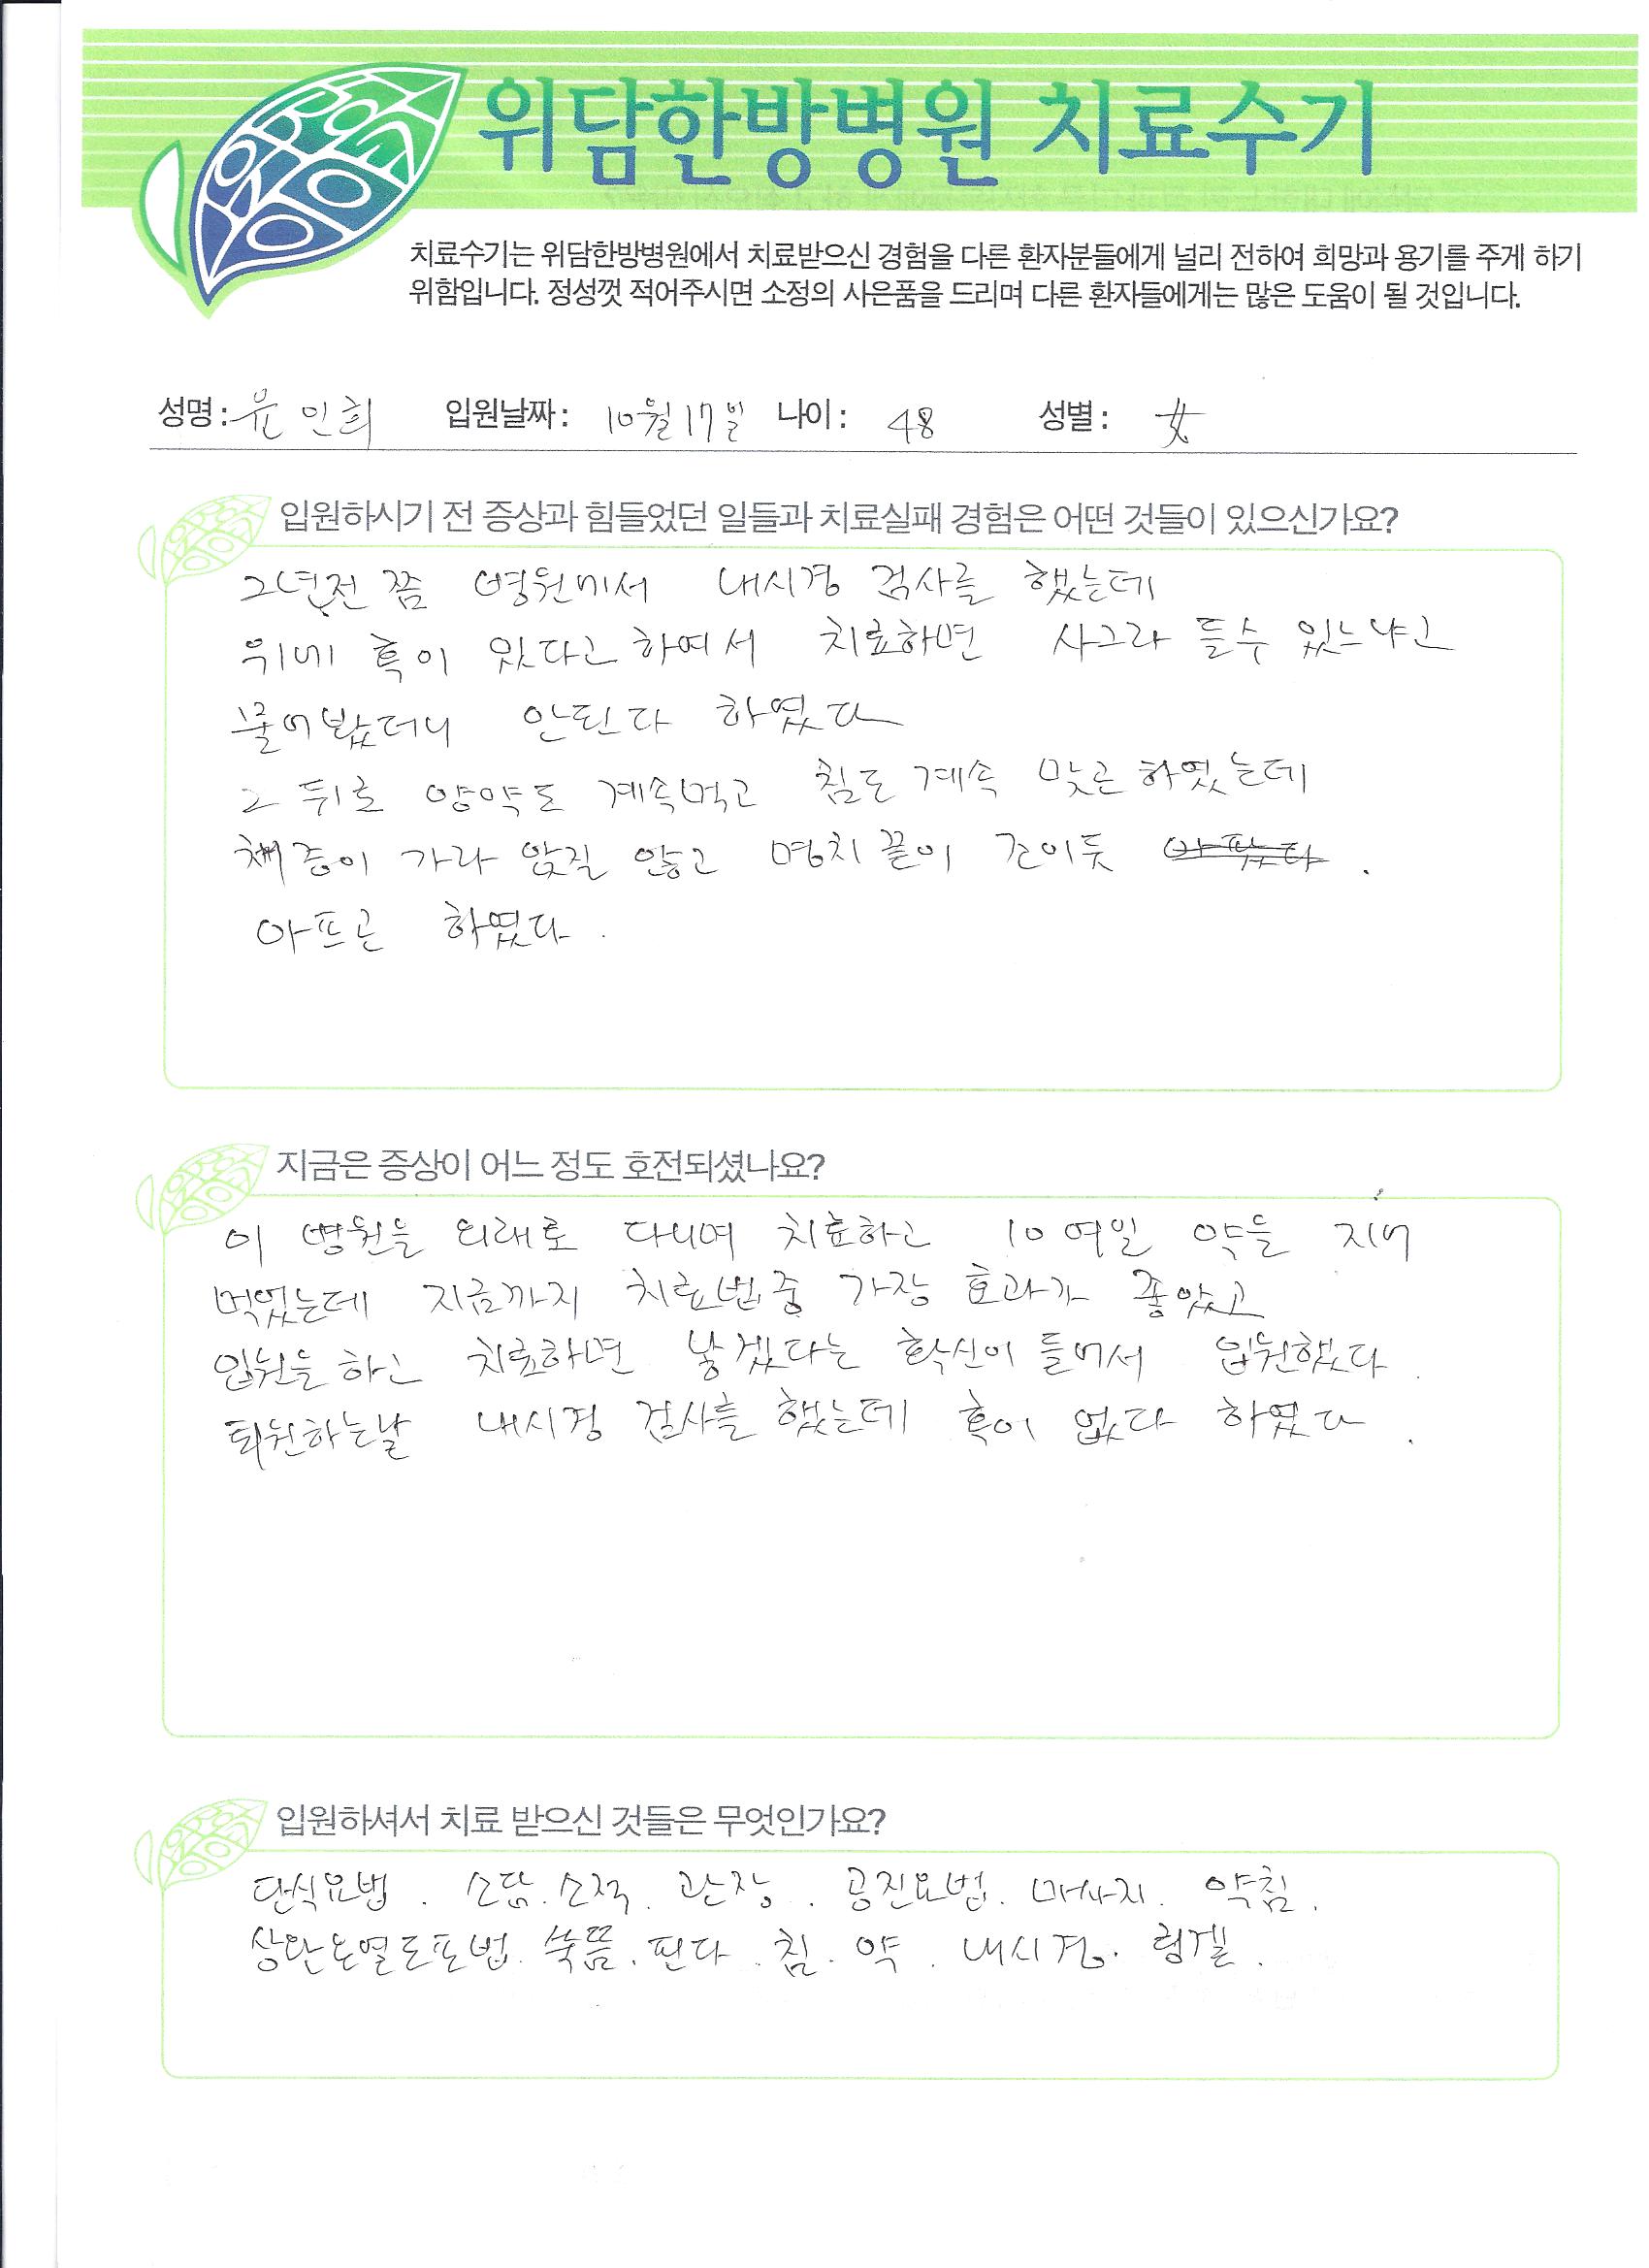 위담한방병원 치료수기
치료수기는 위담한방병원에서 치료받으신 경험을 다른 환자분들에게 널리 전하여 희망과 용기를 주게 하기
위함입니다. 정성껏 적어주시면 소정의 사은품을 드리며 다른 환자들에게는 많은 도움이 될 것입니다.
성명: 윤인희 입원날짜: 10월 17일 나이: 48 성별: 女
입원하시기 전 증상과 힘들었던 일들과 치료실패 경험은 어떤 것들이 있으신가요?
2년전 쯤 병원에서 내시경 검사를 했는데
위에 혹이 있다고 하여서 치료하면 사그라 들수 있느냐고
물어봤더니 안된다 하였다
그 뒤로 양약도 계속먹고 침도 계속 맞곤 하였는데
채증이 가라 앉질 않고 명치 끝이 조이듯 아팠다.
아프곤 하였다.
지금은 증상이 어느 정도 호전되셨나요?
이 병원을 외래로 다니며 치료하고 10여일 약을 지어
먹었는데 지금까지 치료법중 가장 효과가 좋았고
입원을 하고 치료하면 낳겠다는 확신이 들어서 입원했다.
퇴원하는날 내시경 검사를 했는데 혹이 없다 하였다.
입원하셔서 치료 받으신 것들은 무엇인가요?
단식요법. 소담. 소적. 관장. 공진요법. 마사지. 약침.
상완온열도포법. 쑥뜸. 핀다. 침. 약. 내시경. 링겔.